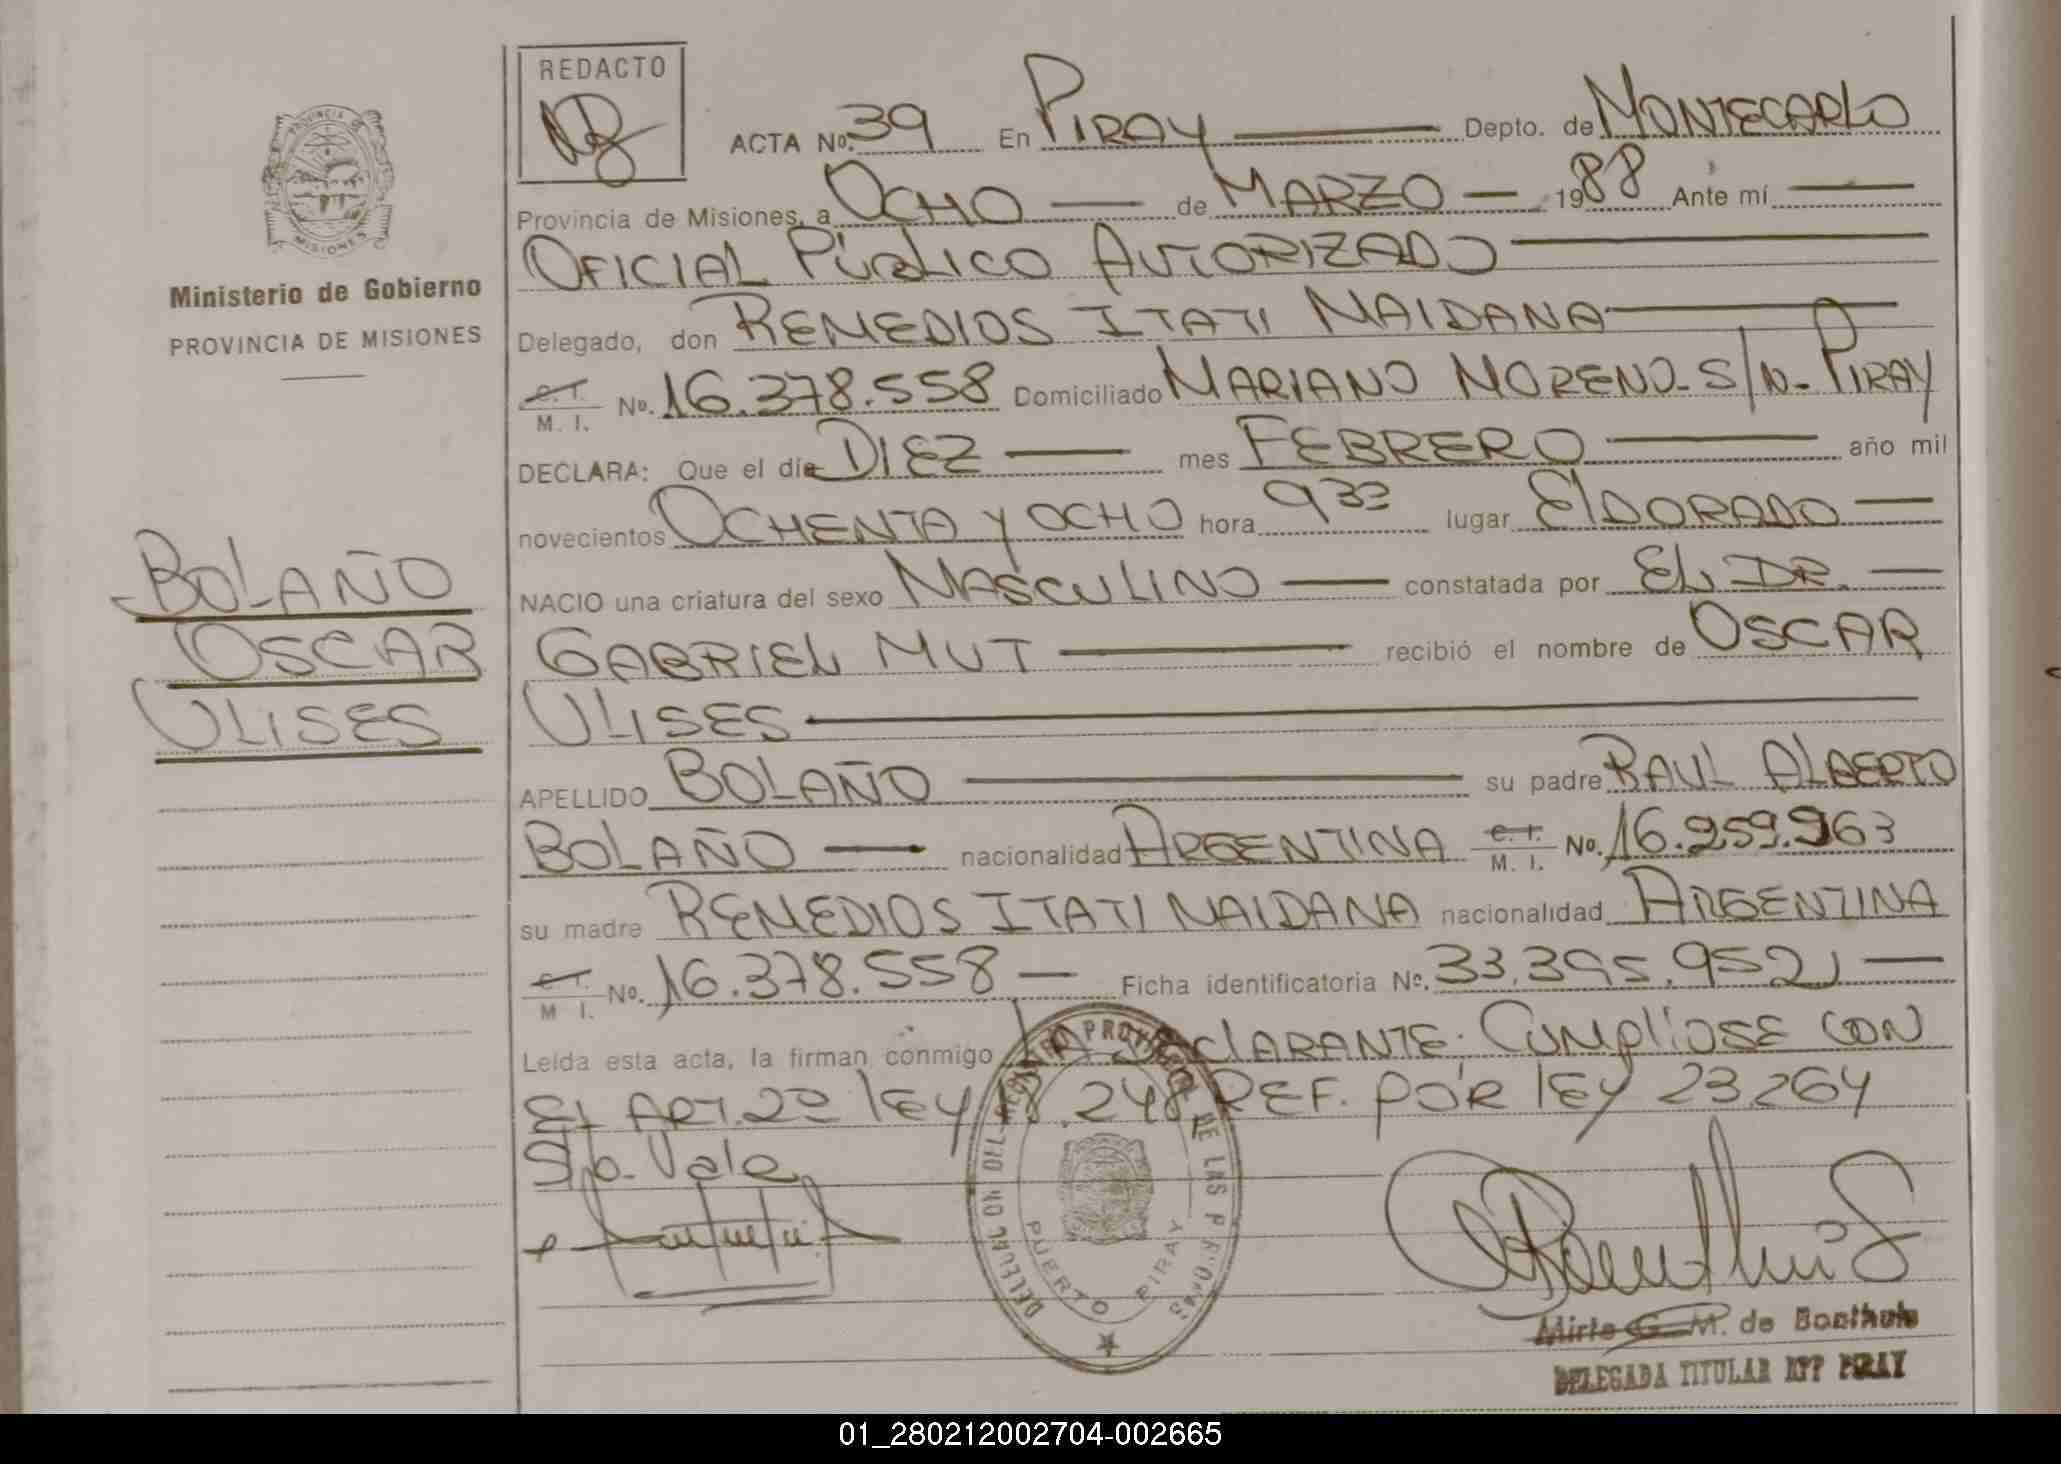 REDACTO
ACTA Nº. 39 En PIRAY Depto. de MONTECARLO
Provincia de Misiones, a OCHO de MARZO 1988 Ante mí
OFICIAL PÚBLICO AUTORIZADO
Delegado, don REMEDIOS ITATI MAIDANA
C. I.
M. I. Nº. 16.378.558 Domiciliado MARIANO MORENO S/N- PIRAY
DECLARA: Que el día DIEZ mes FEBRERO año mil
novecientos OCHENTA Y OCHO hora 9³³ lugar ElDORADO
NACIO una criatura del sexo MASCULINO constatada por EL DR.
GABRIEL MUT recibió el nombre de OSCAR
ULISES
APELLIDO BOLAÑO su padre RAUL ALBERTO
BOLAÑO nacionalidad ARGENTINA C. I. M. I. Nº. 16.259.963
su madre REMEDIOS ITATI MAIDANA nacionalidad ARGENTINA
C. I.
M. I. Nº. 16.378.558 Ficha identificatoria Nº. 33.395.952
Leída esta acta, la firman conmigo LA DEClARANTE. CUMPlIOSE CON
El ART. 2º lEy 18.248 REF. POR lEy 23.264
S/b. Vale
PROVINCIA DE
MISIONES
Ministerio de Gobierno
PROVINCIA DE MISIONES
BOLAÑO
OSCAR
ULISES
DELEGACION DEL REGISTRO PROVINCIAL DE LAS PERSONAS
PUERTO PIRAY
Mirta G. M. de
DELEGADA TITULAR RPP PIRAY
01_280212002704-002665